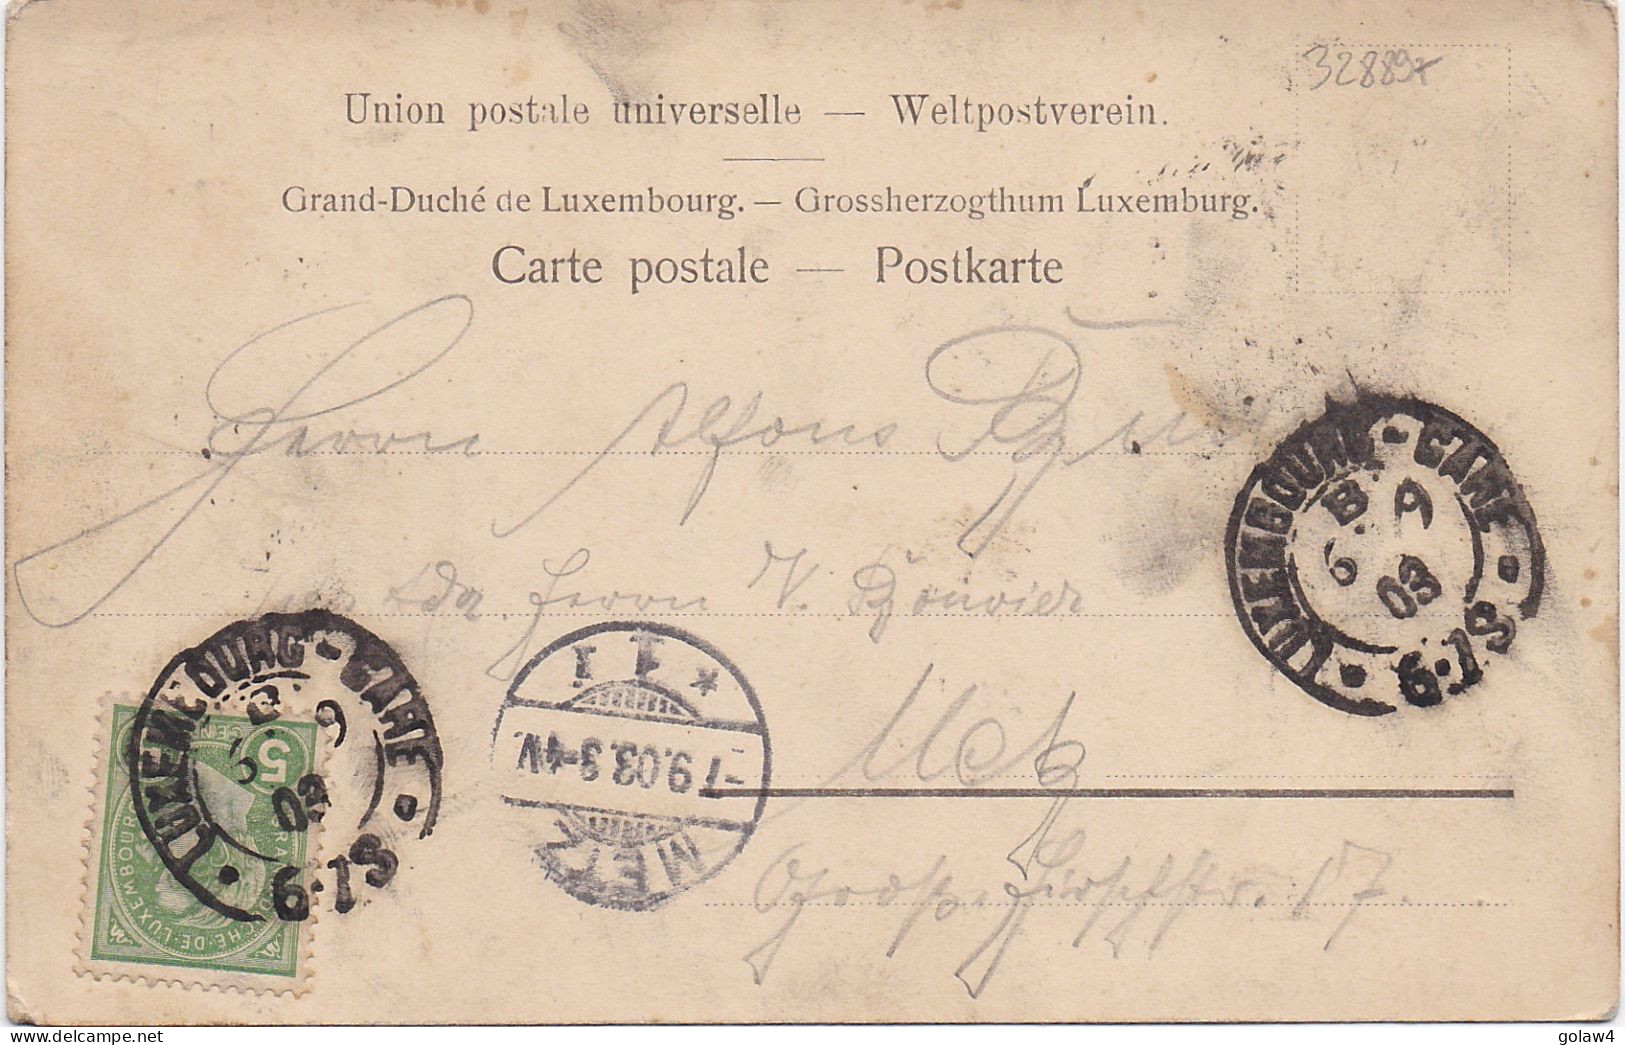 32889x
Union postale universelle — Weltpostverein.
Grand-Duché de Luxembourg. — Grossherzogthum Luxemburg.
Carte postale — Postkarte
Herrn Alfons
Herrn N. Bouvier
Metz
17.
LUXEMBOURG-GARE
B 9
6 03
6-1S
LUXEMBOURG-GARE
B 9
6 03
6-1S
5
GRAND DUCHÉ-DE-LUXEMBOURG
* 1 1
-7.9.03.3-4V.
METZ
golaw4